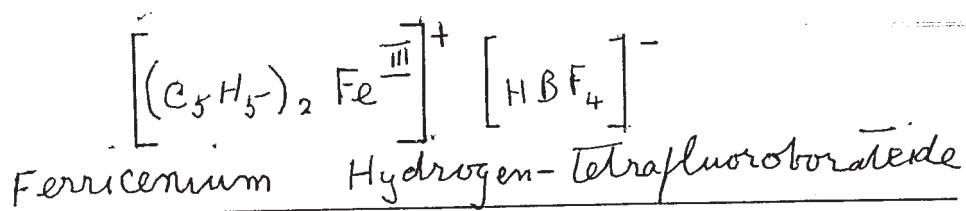 [(C5H5)2 Fe^III]+ [HBF4]-
Ferricenium Hydrogen-Tetrafluoroborateide